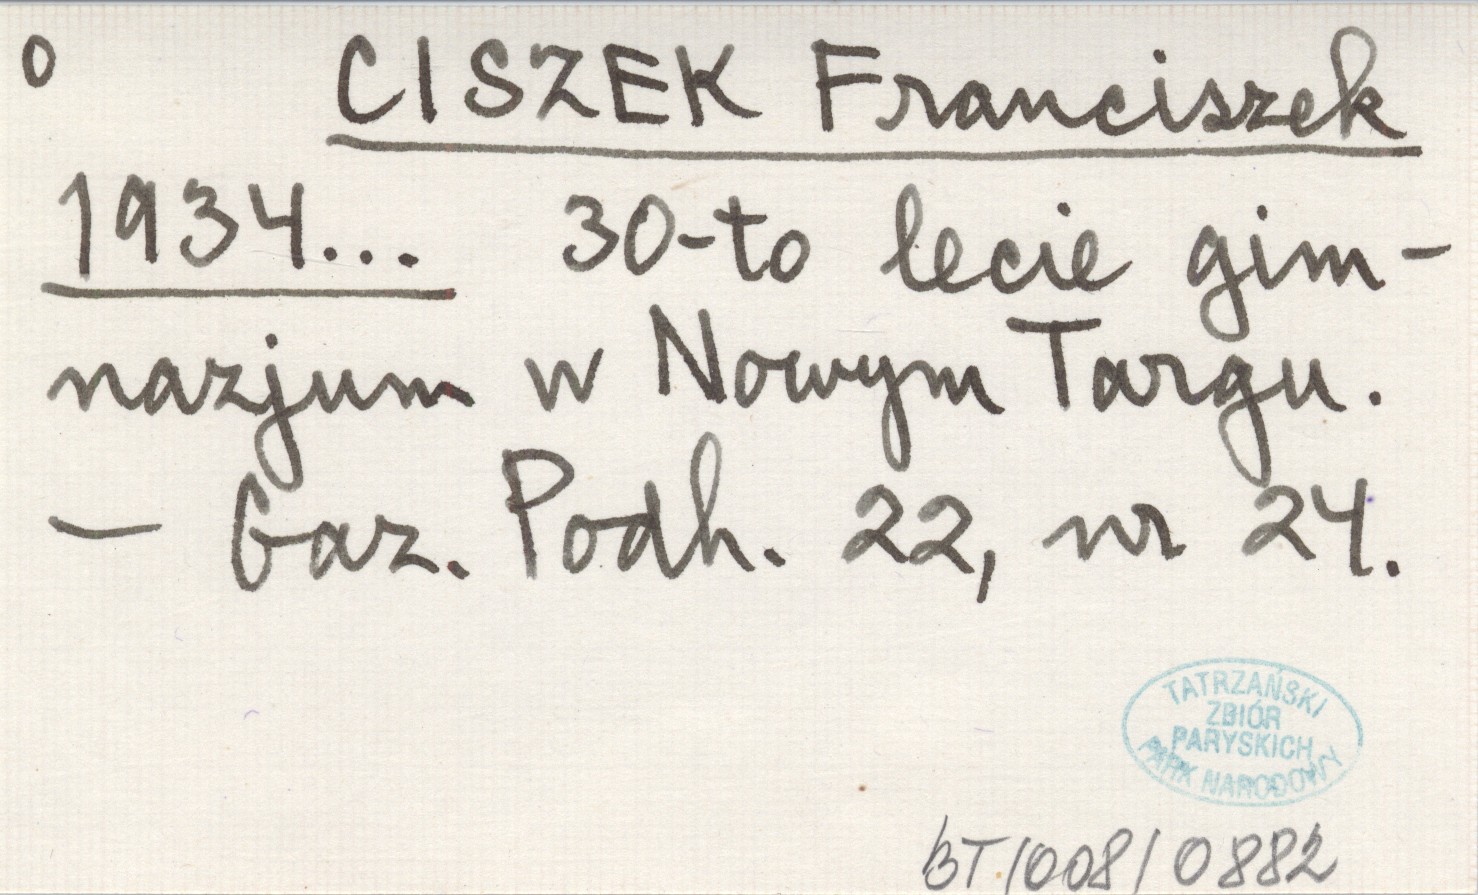 o CISZEK Franciszek
1934... 30-to lecie gim-
nazjum w Nowym Targu.
— Gaz. Podh. 22, nr 24.
TATRZAŃSKI
ZBIÓR
PARYSKICH
PARK NARODOWY
BT/008/0882